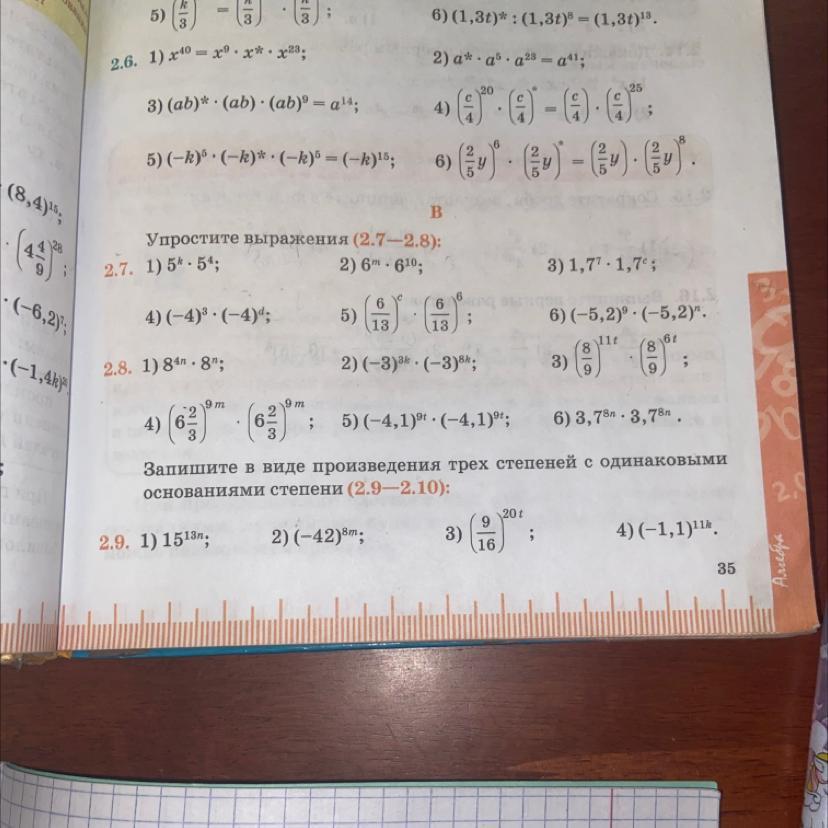 5) (k/3) = ( /3) · ( /3) ;
6) (1,3t)* : (1,3t)⁸ = (1,3t)¹³.
2.6. 1) x⁴⁰ = x⁹ · x* · x²³;
2) a* · a⁵ · a²³ = a⁴¹;
3) (ab)* · (ab) · (ab)⁹ = a¹⁴;
4) (c/4)²⁰ · (c/4)* = (c/4) · (c/4)²⁵;
5) (–k)⁵ · (–k)* · (–k)⁵ = (–k)¹⁵;
6) (2/5 y)⁶ · (2/5 y)* = (2/5 y) · (2/5 y)⁸.
(8,4)¹⁵;
· (4 4/9)²⁸;
· (–6,2)⁷;
· (–1,4k)
В
Упростите выражения (2.7—2.8):
2.7. 1) 5ᵏ · 5⁴;
2) 6ᵐ · 6¹⁰;
3) 1,7⁷ · 1,7ᶜ;
4) (–4)³ · (–4)ᵈ;
5) (6/13)ᶜ · (6/13)⁶;
6) (–5,2)⁹ · (–5,2)ⁿ.
2.8. 1) 8⁴ⁿ · 8ⁿ;
2) (–3)³ᵏ · (–3)⁸ᵏ;
3) (8/9)¹¹ᵗ · (8/9)⁶ᵗ;
4) (6 2/3)⁹ᵐ · (6 2/3)⁹ᵐ;
5) (–4,1)⁹ᵗ · (–4,1)⁹ᵗ;
6) 3,7⁸ⁿ · 3,7⁸ⁿ.
Запишите в виде произведения трех степеней с одинаковыми
основаниями степени (2.9—2.10):
2.9. 1) 15¹³ⁿ;
2) (–42)⁸ᵐ;
3) (9/16)²⁰ᵗ;
4) (–1,1)¹¹ᵏ.
35
Алгебра